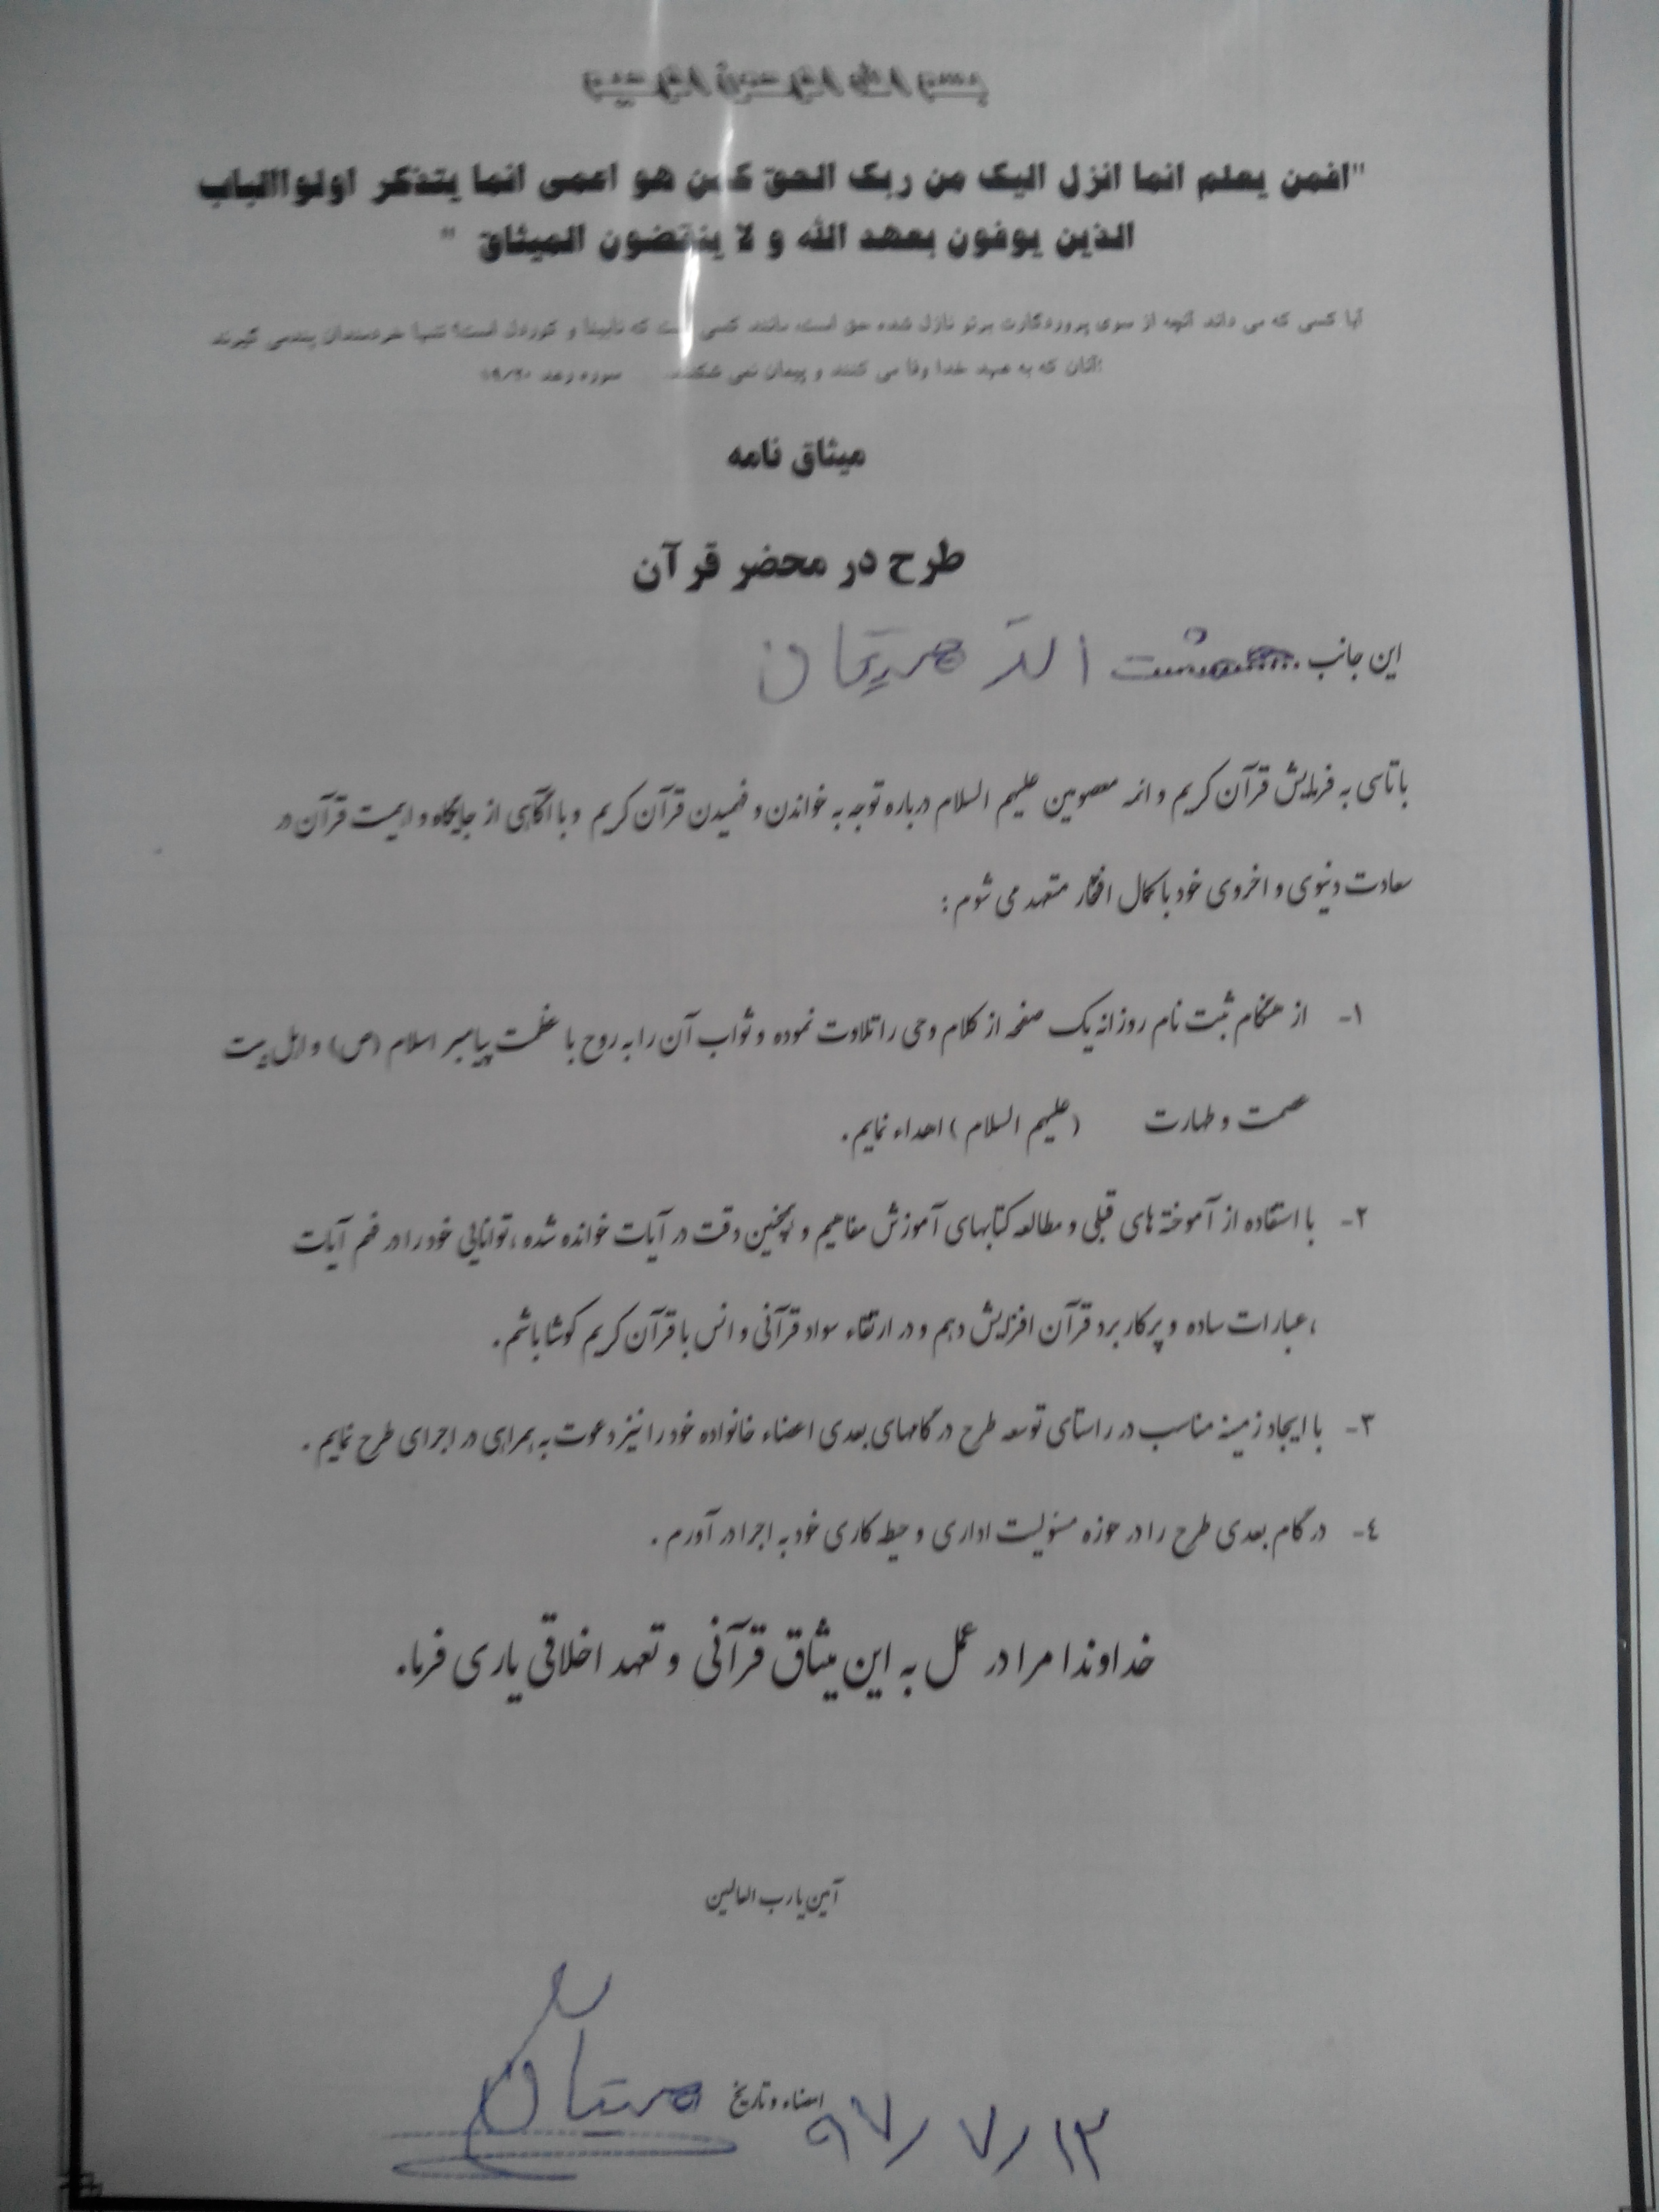 بسم الله الرحمن الرحیم
"افمن یعلم انما انزل الیک من ربک الحق کمن هو اعمی انما یتذکر اولواالباب
الذین یوفون بعهد الله و لا ینقضون المیثاق "
آیا کسی که می داند آنچه از سوی پروردگارت برتو نازل شده حق است، مانند کسی است که نابینا و کوردل است؟ تنها خردمندان پندمی گیرند
؛آنان که به عهد خدا وفا می کنند و پیمان نمی شکنند. سوره رعد ۱۹/۲۰
میثاق نامه
طرح در محضر قرآن
این جانب
با تاسی به فرمایش قرآن کریم و ائمه معصومین علیهم السلام درباره توجه به خواندن و فهمیدن قرآن کریم و با آگاهی از جایگاه و اهمیت قرآن در
سعادت دنیوی و اخروی خود با کمال افتخار متعهد می شوم :
۱- از هنگام ثبت نام روزانه یک صفحه از کلام وحی را تلاوت نموده و ثواب آن را به روح با عظمت پیامبر اسلام (ص) و اهل بیت
عصمت و طهارت (علیهم السلام) اهداء نمایم.
۲- با استفاده از آموخته های قبلی و مطالعه کتابهای آموزش مفاهیم و همچنین دقت در آیات خوانده شده ، توانایی خود را در فهم آیات
، عبارات ساده و پرکاربرد قرآن افزایش دهم و در ارتقاء سواد قرآنی و انس با قرآن کریم کوشا باشم.
۳- با ایجاد زمینه مناسب در راستای توسعه طرح در گامهای بعدی اعضاء خانواده خود را نیز دعوت به همراهی در اجرای طرح نمایم .
٤- در گام بعدی طرح را در حوزه مسئولیت اداری و حیطه کاری خود به اجرا در آورم .
خداوندا مرا در عمل به این میثاق قرآنی و تعهد اخلاقی یاری فرما.
آمین یا رب العالمین
امضاء و تاریخ
۹۷/۷/۱۳